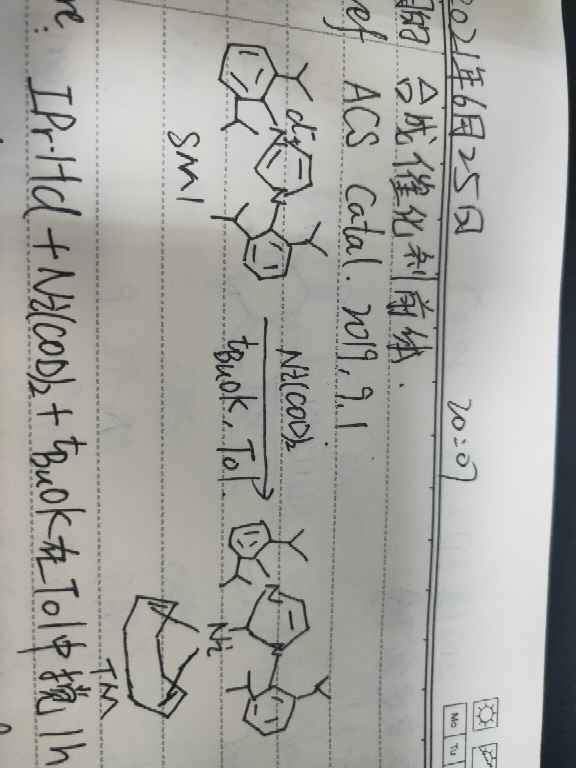 2021年6月25日 20:07
的 合成催化剂前体.
ef ACS Catal. 2019, 9, 1
Ni(COD)2
tBuOK, Tol
Cl
N
N
SM1
N
N
Ni
TM
re: IPr·HCl + Ni(COD)2 + tBuOK 在 Tol 中搅 1h
Mo Tu